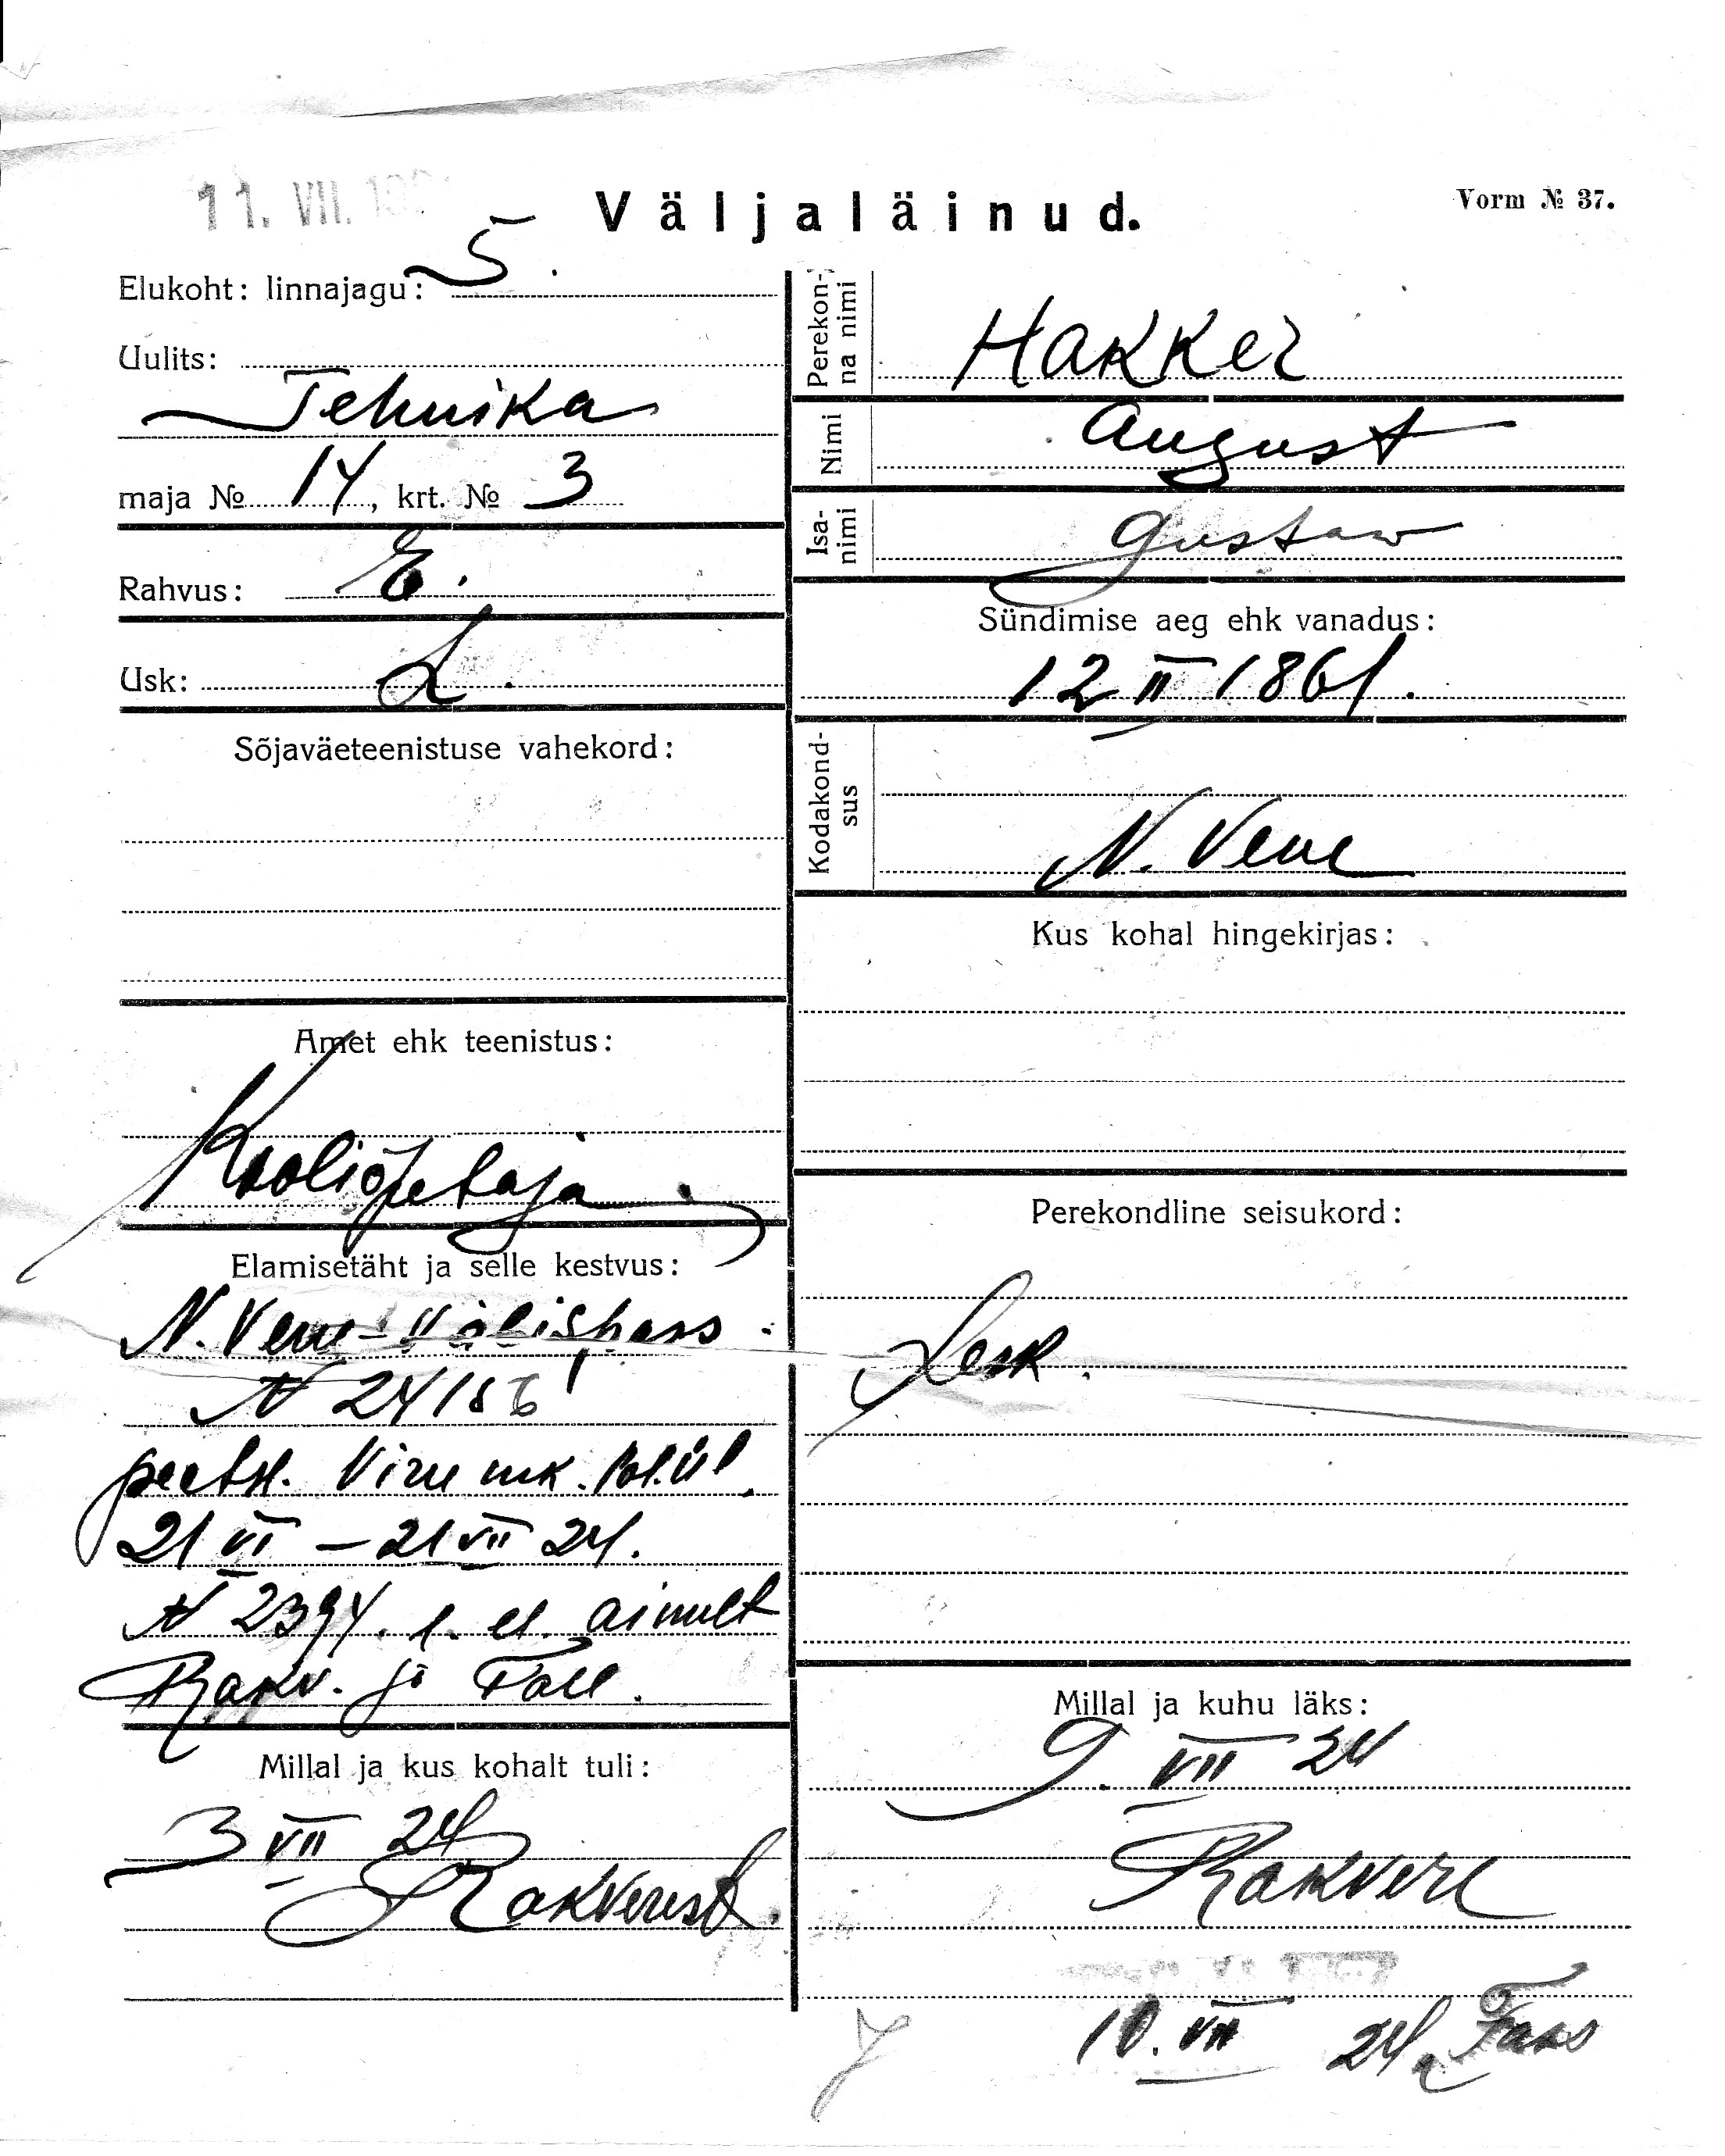 11. VII. 192
Väljaläinud.
Vorm № 37.
Elukoht: linnajagu: 5.
Uulits:
Tehnika
maja № 14, krt. № 3
Rahvus: E.
Usk: L.
Sõjaväeteenistuse vahekord:
Amet ehk teenistus:
Kooliõpetaja
Elamisetäht ja selle kestvus:
N. Vene Välispass
N 24186
peetst. Viru mk. Pol. ül.
21 VI – 21 VII 24.
N 2394. l. el. ainult
Rakv. ja Tall.
Millal ja kus kohalt tuli:
3 VII 24
Rakverest.
Perekon-
na nimi
Hakker
Nimi
August
Isa-
nimi
Gustaw
Sündimise aeg ehk vanadus:
12 II 1861.
Kodakond-
sus
N. Vene
Kus kohal hingekirjas:
Perekondline seisukord:
Lesk.
Millal ja kuhu läks:
9. VII 24
Rakvere
10. VII 24.